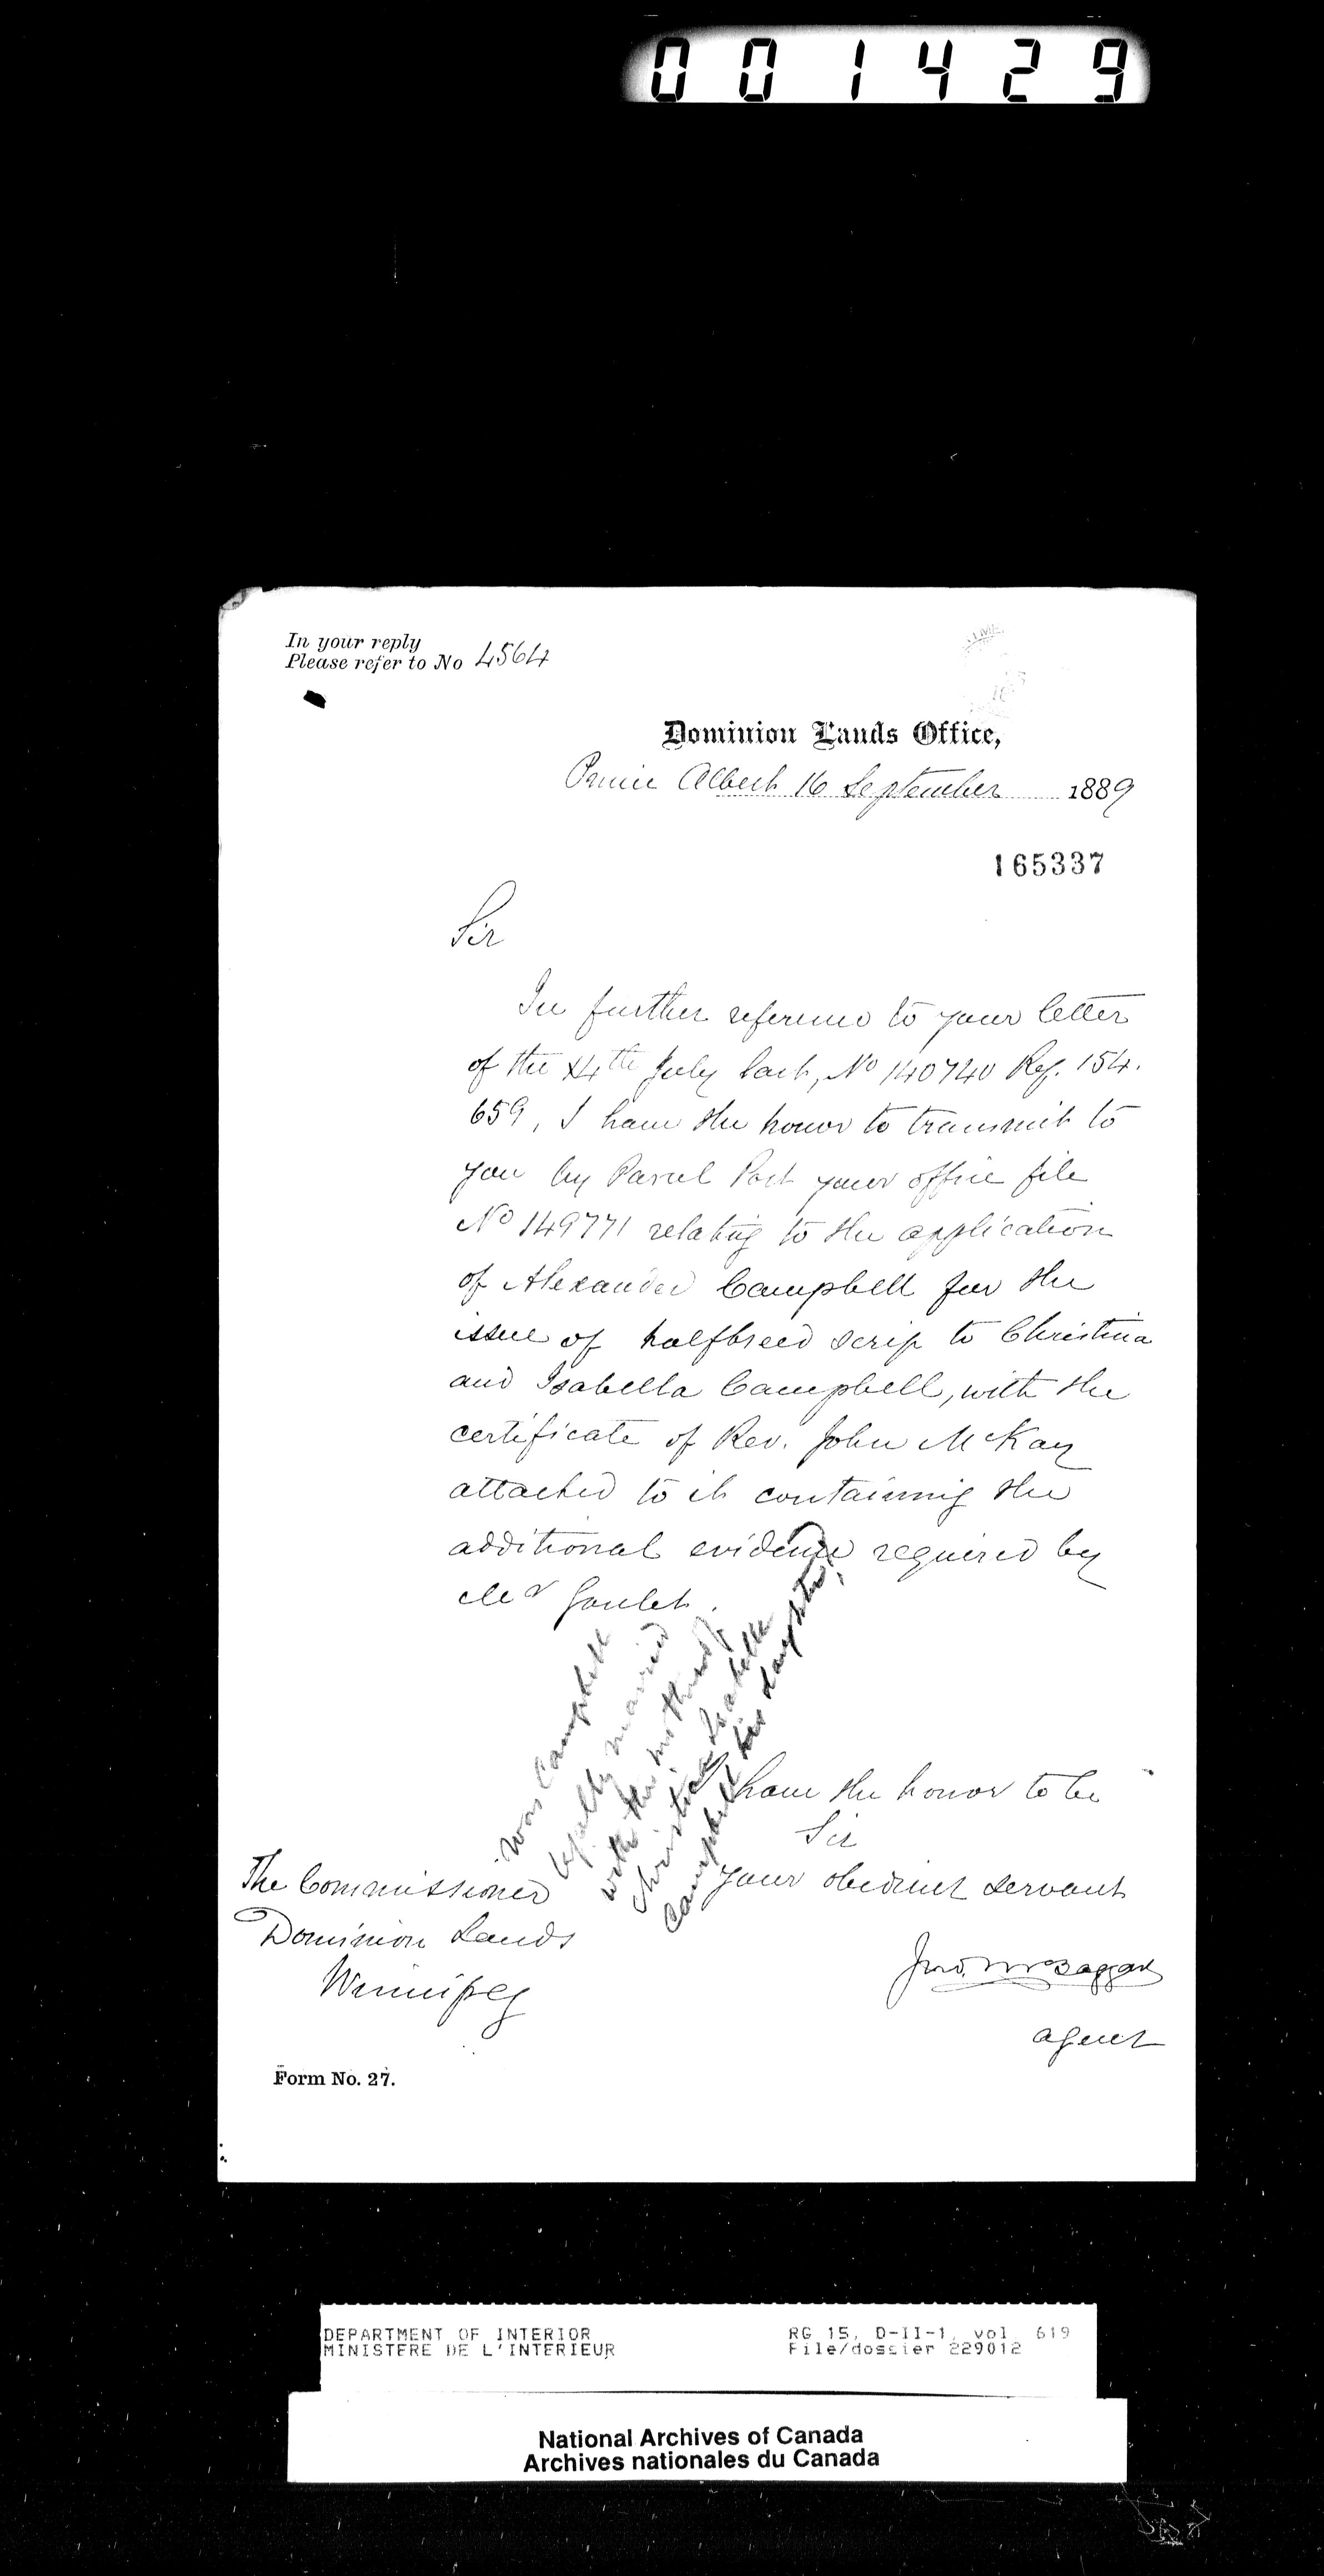 001429
In your reply
Please refer to No 4564
Dominion Lands Office,
Prince Albert 16 September 1889
165337
Sir
In further reference to your letter
of the 24th July last, No 140740 Ref. 154.
659, I have the honor to transmit to
you by Parcel Post your office file
No 149771 relating to the application
of Alexander Campbell for the
issue of halfbreed scrip to Christina
and Isabella Campbell, with the
certificate of Rev. John McKay
attached to it containing the
additional evidence required by
Mr Goulet.
Was Campbell
legally married
with the mother of
Christina & Isabella
Campbell his daughters?
I have the honor to be
Sir
your obedient servant
Jno.
agent
The Commissioner
Dominion Lands
Winnipeg
Form No. 27.
DEPARTMENT OF INTERIOR
MINISTERE DE L'INTERIEUR
RG 15, D-II-1, vol 619
File/dossier 229012
National Archives of Canada
Archives nationales du Canada